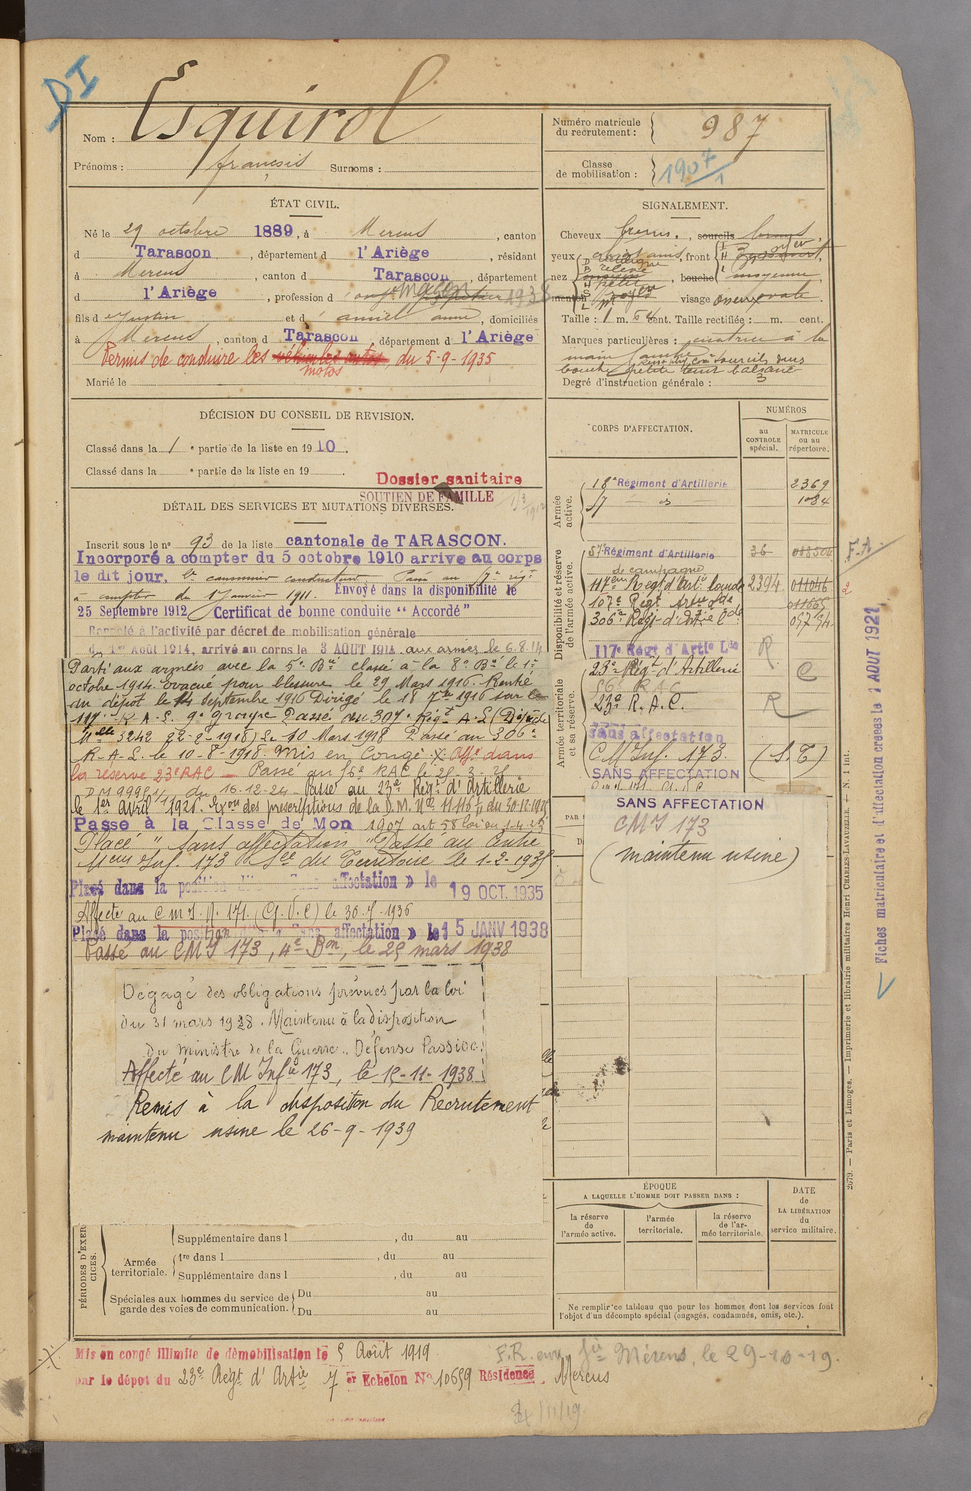 DI
Nom : Esquirol
Prénoms : françois Surnoms :
Numéro matricule
du recrutement : 987
Classe
de mobilisation : 1907/1
ÉTAT CIVIL.
Né le 29 octobre 1889, à Mercus, canton
d Tarascon, département d l'Ariège, résidant
à Mercus, canton d Tarascon, département
d l'Ariège, profession d maçon 1938
fils d Justin et d anne, domiciliés
à Mercus, canton d Tarascon, département d l'Ariège
Permis de conduire les motos du 5-9-1935
Marié le
SIGNALEMENT.
Cheveux bruns, sourcils bruns
yeux front
nez bouche moyenne
menton visage ovale
Taille : 1 m. cent. Taille rectifiée : m. cent.
Marques particulières : cicatrice à la
main gauche
bouche petite
Degré d'instruction générale : 3
DÉCISION DU CONSEIL DE REVISION.
Classé dans la 1 e partie de la liste en 1910.
Classé dans la e partie de la liste en 19
Dossier sanitaire
SOUTIEN DE FAMILLE
DÉTAIL DES SERVICES ET MUTATIONS DIVERSES.
Inscrit sous le n° 93 de la liste cantonale de TARASCON.
Incorporé à compter du 5 octobre 1910 arrivé au corps
le dit jour, 2e canonnier conducteur. Passé au 57e régt
à compter du 1er Janvier 1911. Envoyé dans la disponibilité le
25 Septembre 1912 Certificat de bonne conduite "Accordé"
Rappelé à l'activité par décret de mobilisation générale
du 1er Août 1914, arrivé au corps le 3 AOUT 1914. aux armées le 6.8.14
Parti aux armées avec la 5e Bie classé à la 8e Bie le 1er
octobre 1914 évacué pour blessure le 29 Mars 1916. Rentré
au dépôt le 14 Septembre 1916 Dirigé le 18 7bre 1916 sur le
117e R.A.L. 9e groupe Passé au 307e Régt A.L (Dépêche
Mlle 3242 22-2-1918) le 10 Mars 1918 Passé au 306e
R.A.L. le 10-8-1918. Mis en Congé X Affé dans
la réserve 23e RAC — Passé au
DM 9995 du 16-12-24. Passé au 23e Régt d'Artillerie
le 1er avril 1926. Exon des prescriptions de la D.M. No 11116 du 30.12.1925
Passé à la Classe de Mon 1907 art 58 loi du 1-4-23
Placé "sans affectation" Passé au Centre
Mcm Inf. 173 Sce du Territoire le 1-2-1935
Placé dans la position « Sans affectation » le 19 OCT. 1935
Affecté au C M I. N. 171. (G.V.C) le 30-5-1936
Placé dans la position dite « Sans affectation » le 15 JANV 1938
Passé au CMI 173, 4e Bon, le 25 mars 1938
Dégagé des obligations prévues par la loi
du 31 mars 1928. Maintenu à la disposition
du ministre de la Guerre. Défense Passive.
Affecté au CM Infie 173, le 15-11-1938
Remis à la disposition du Recrutement
maintenu usine le 26-9-1939
CORPS D'AFFECTATION.
NUMÉROS
au
CONTROLE
spécial.
MATRICULE
ou au
répertoire.
Armée
active.
18e Régiment d'Artillerie 2369
57 — is 1084
Disponibilité et réserve
de l'armée active.
57e Régiment d'Artillerie 36
de campagne
118ème Régt d'Arti lourde 2394 011046
107e Régt Artie Lde 011665
306e Régt d'Artie Lde
117e Régt d'Artie Lde R
Armée territoriale
et sa réserve.
23e Régt d'Artillerie C
R.A.C.
23e R.A.C. R
sans affectation
CM Inf. 173. (S.T)
SANS AFFECTATION
SANS AFFECTATION
CMI 173
(maintenu usine)
F.A.
Fiches matriculaire et d'affectation créées le 1 AOUT 1921
2079. — Paris et Limoges. — Imprimerie et librairie militaires Henri CHARLES-LAVAUZELLE. — N. 1 int.
ÉPOQUE
A LAQUELLE L'HOMME DOIT PASSER DANS :
la réserve
de
l'armée active.
l'armée
territoriale.
la réserve
de l'ar-
mée territoriale.
DATE
de
LA LIBÉRATION
du
service militaire.
Ne remplir ce tableau que pour les hommes dont les services font
l'objet d'un décompte spécial (engagés, condamnés, omis, etc.).
PÉRIODES D'EXER-
CICES.
Armée
territoriale.
Supplémentaire dans l , du au
1re dans l , du au
Supplémentaire dans l , du au
Spéciales aux hommes du service de
garde des voies de communication.
Du au
Du au
Mis en congé illimité de démobilisation le 5 Août 1919
par le dépôt du 23e Régt d'Artie 7 er Echelon N° 10659 Résidence. Mercus
F.R. env. Gie Mérens, le 29-10-19.